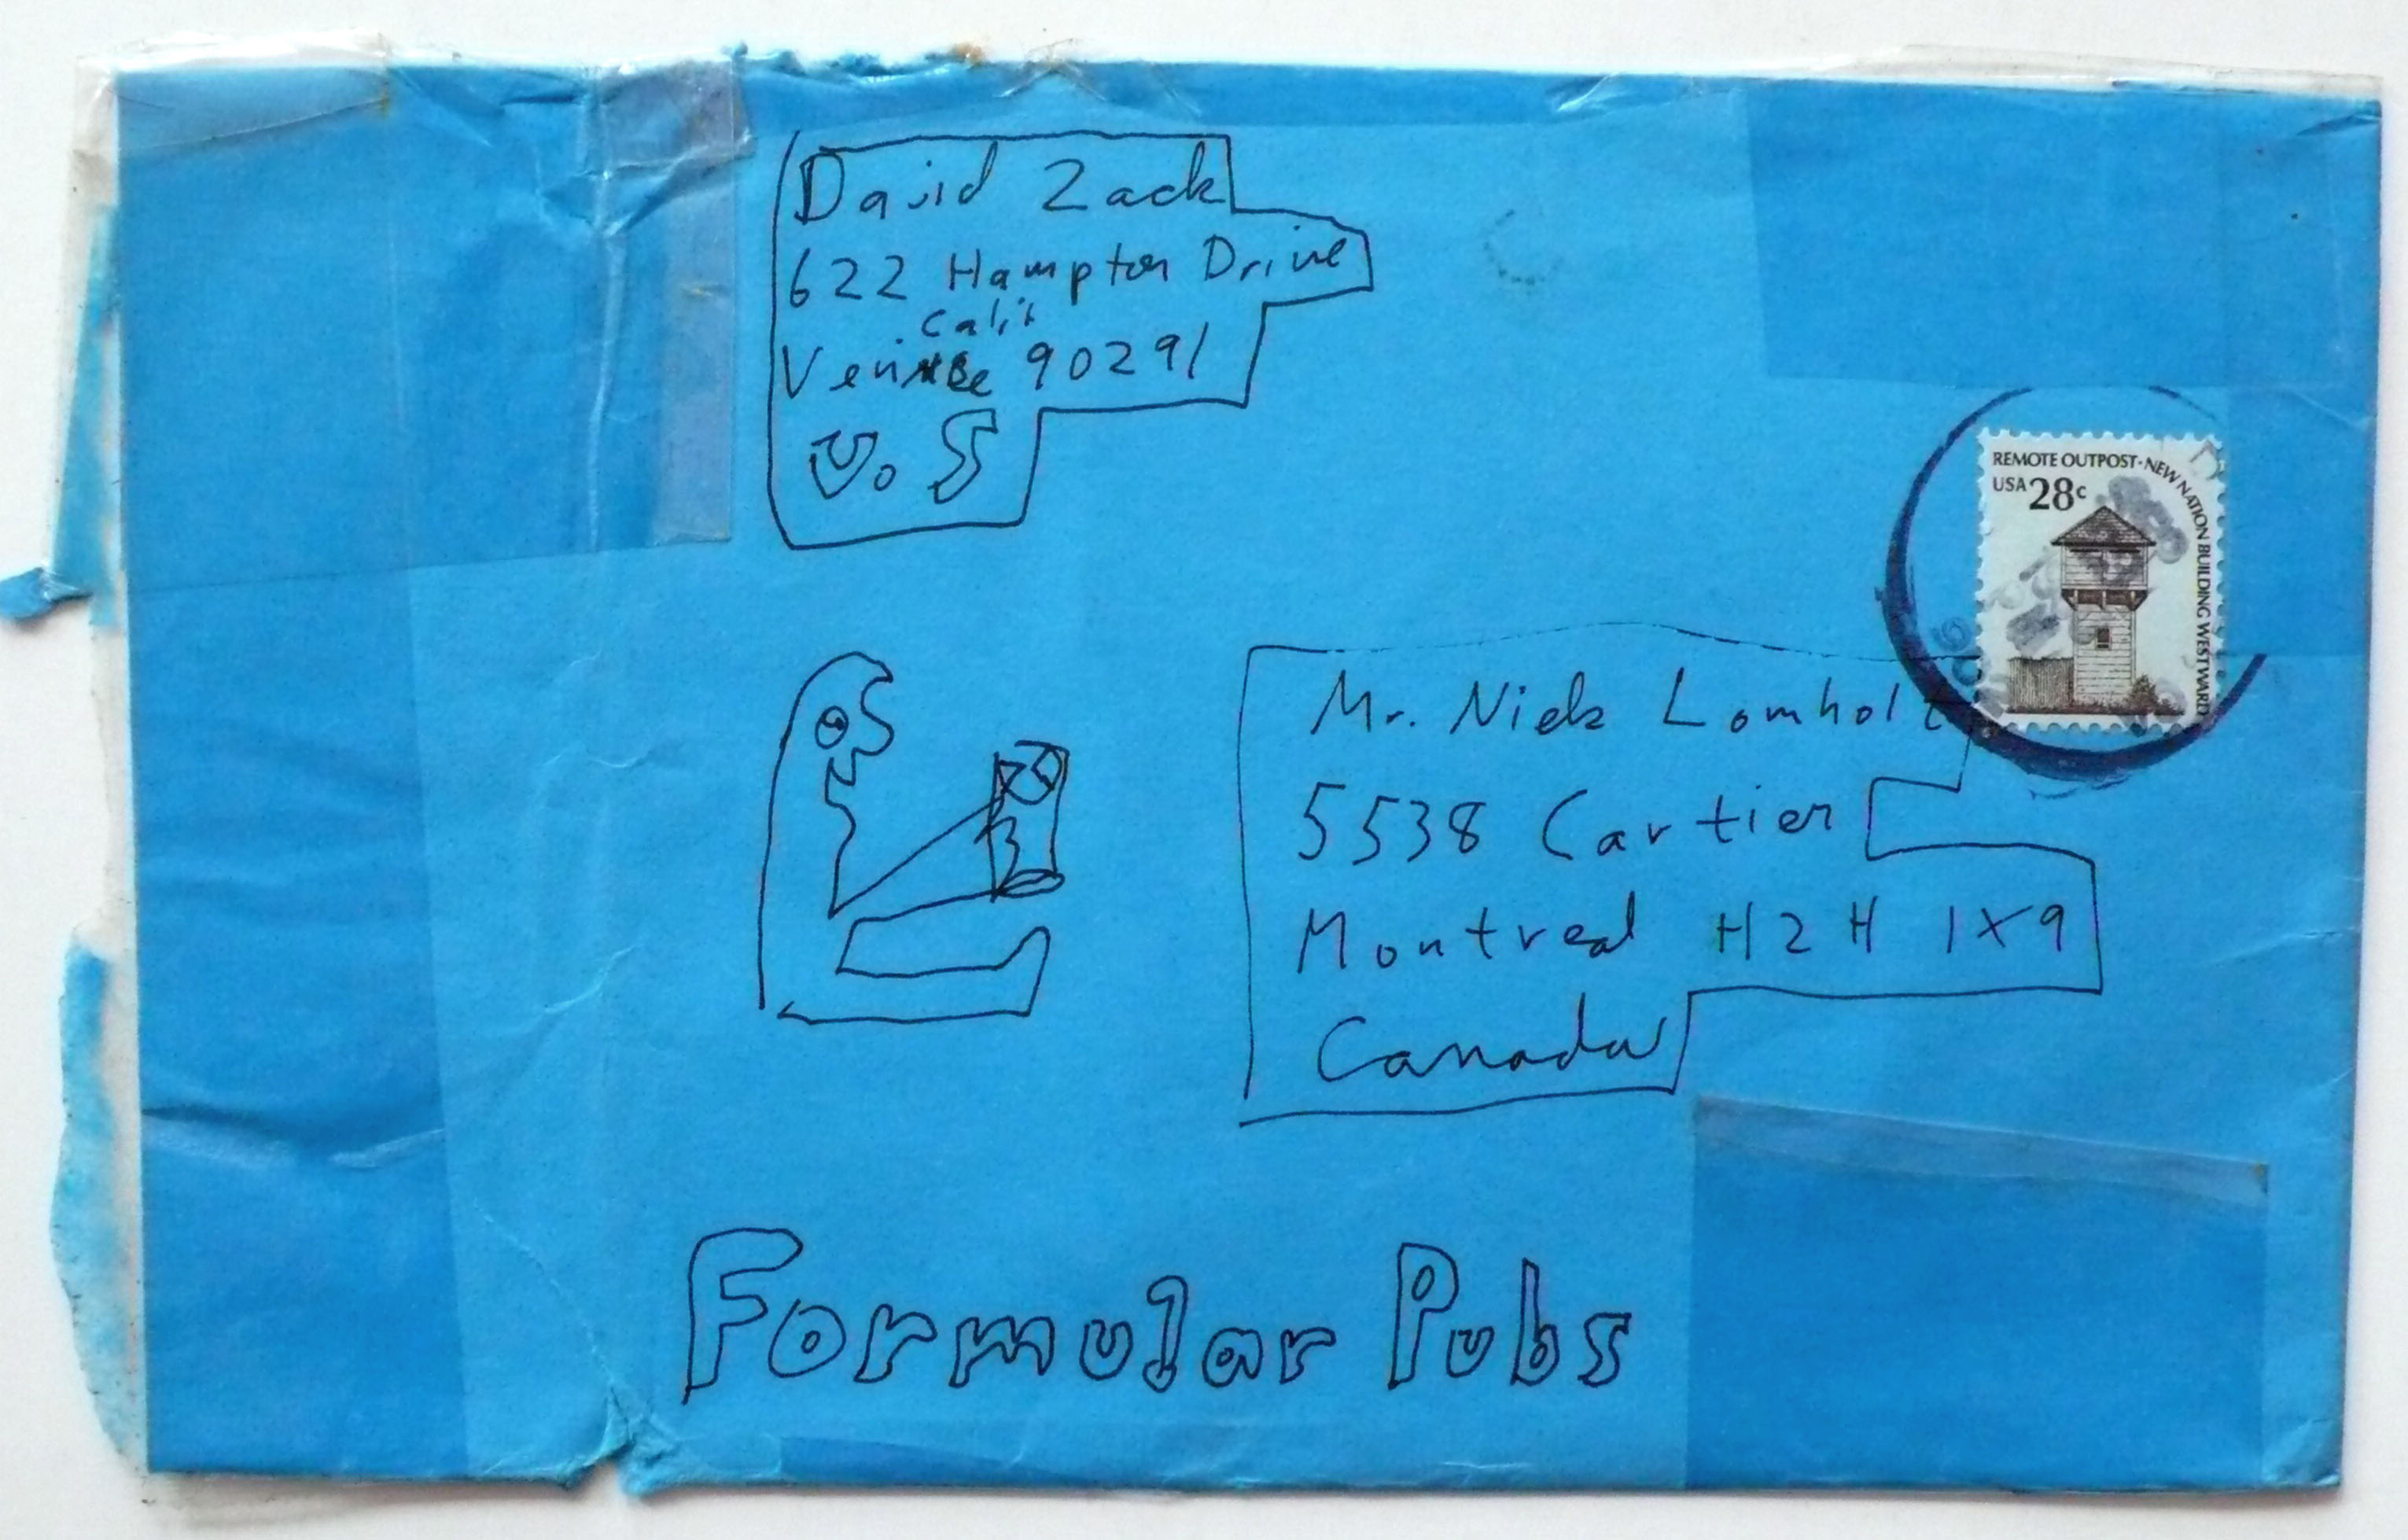 David Zack
622 Hampton Drive
Calif
Venice 90291
U. S
REMOTE OUTPOST · NEW NATION BUILDING WESTWARD
USA 28c
Mr. Niels Lomholt
5538 Cartier
Montreal H2H 1X9
Canada
Formular Pubs